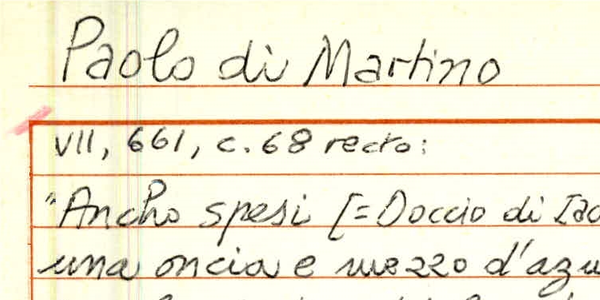 Paolo di Martino
VII, 661, c. 68 recto:
"Ancho spesi [= Doccio di Iac
una oncia e mezzo d'azu